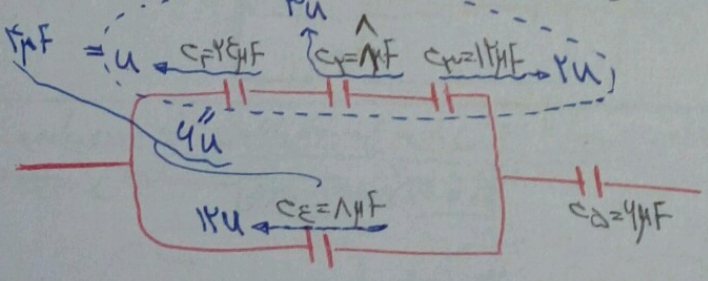 ۳u ۸
۴μF = u C۲=۲۴μF C۲=۸μF C۳=۱۲μF ۲u
۶u
۱۲u C۴=۸μF C۵=۶μF